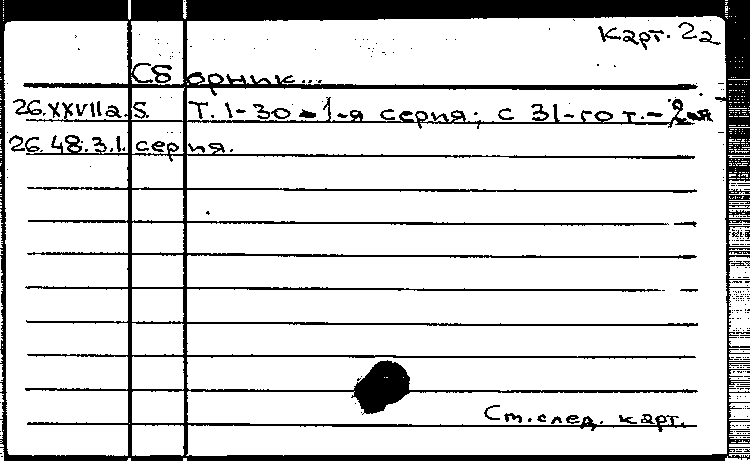 Карт. 2а
Сборник...
26.XXVIIа.S. Т. 1-30 - 1-я серия; с 31-го т. - 2-я
26.48.3.1. серия.
Ст. след. карт.